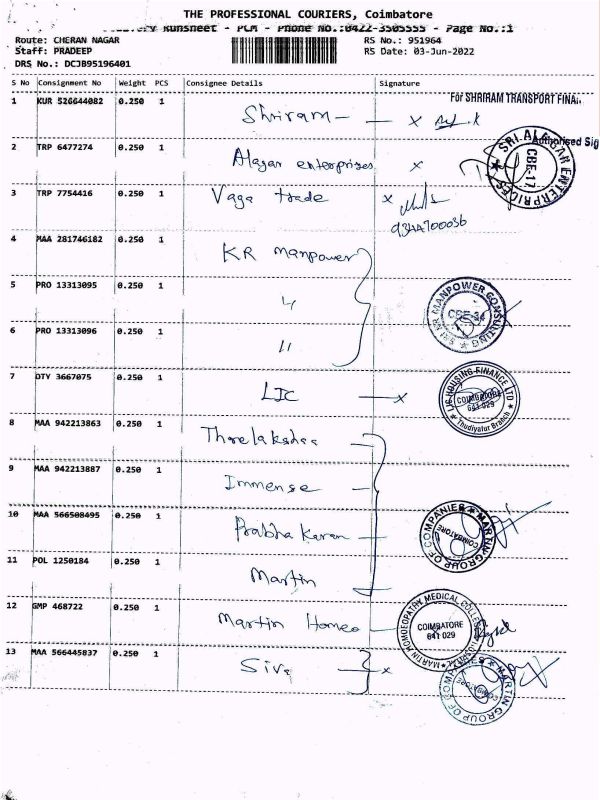 THE PROFESSIONAL COURIERS, Coimbatore
Delivery Runsheet - PCM - Phone No.:0422-3505555 - Page No.:1
Route: CHERAN NAGAR RS No.: 951964
Staff: PRADEEP RS Date: 03-Jun-2022
DRS No.: DCJB95196401
S No Consignment No Weight PCS Consignee Details Signature
For SHRIRAM TRANSPORT
1 KUR 526644082 0.250 1 Shriram
Authorised Sig
2 TRP 6477274 0.250 1 Alagar enterprises x
SRI ALAGAR ENTERPRICES CBE-17
3 TRP 7754416 0.250 1 Vaga trade x
4 MAA 281746182 0.250 1 KR Manpower
5 PRO 13313095 0.250 1 "
MANPOWER CONSULTING CBE-34
6 PRO 13313096 0.250 1 "
7 DTY 3667075 0.250 1 LIC x
LIC HOUSING FINANCE LTD COIMBATORE 641 029 Thudiyalur Branch
8 MAA 942213863 0.250 1
9 MAA 942213887 0.250 1 Immense
10 MAA 566508495 0.250 1 Prabha Karan
MARTIN GROUP OF COMPANIES COIMBATORE
11 POL 1250184 0.250 1 Martin
12 GMP 468722 0.250 1 Martin Homeo
MARTIN HOMOEOPATHY MEDICAL COLLEGE COIMBATORE 641 029
13 MAA 566445837 0.250 1 Siva x
MARTIN GROUP OF COMPANIES